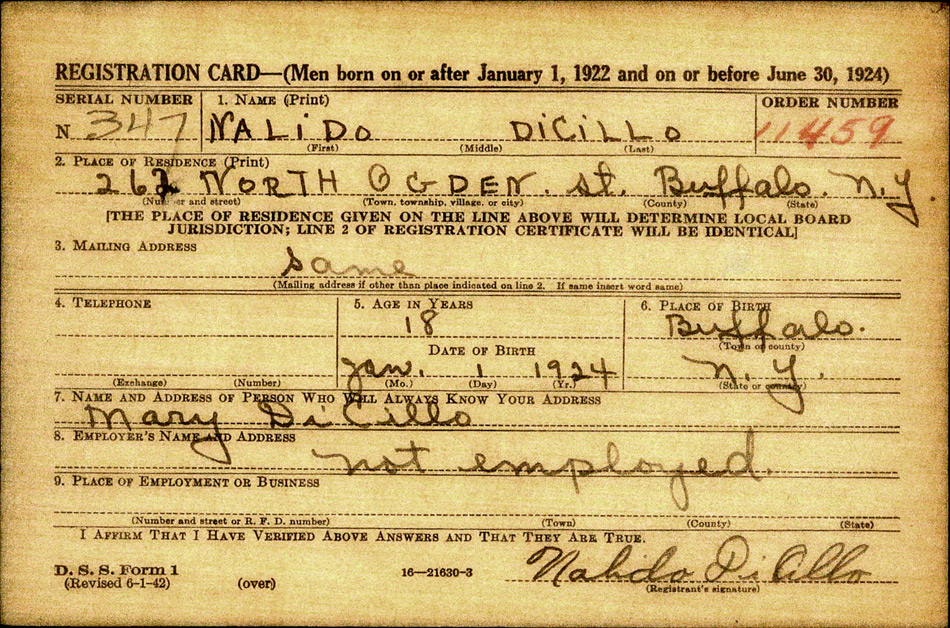 REGISTRATION CARD—(Men born on or after January 1, 1922 and on or before June 30, 1924)
SERIAL NUMBER 1. NAME (Print) ORDER NUMBER
N 347 NALIDO DICILLO 11459
(First) (Middle) (Last)
2. PLACE OF RESIDENCE (Print)
262 NORTH OGDEN. st. Buffalo. N.Y
(Number and street) (Town, township, village, or city) (County) (State)
[THE PLACE OF RESIDENCE GIVEN ON THE LINE ABOVE WILL DETERMINE LOCAL BOARD
JURISDICTION; LINE 2 OF REGISTRATION CERTIFICATE WILL BE IDENTICAL]
3. MAILING ADDRESS
same
(Mailing address if other than place indicated on line 2. If same insert word same)
4. TELEPHONE 5. AGE IN YEARS 6. PLACE OF BIRTH
18 Buffalo.
(Town or county)
DATE OF BIRTH
Jan. 1 1924 N.Y.
(Exchange) (Number) (Mo.) (Day) (Yr.) (State or country)
7. NAME AND ADDRESS OF PERSON WHO WILL ALWAYS KNOW YOUR ADDRESS
Mary DiCillo
8. EMPLOYER'S NAME AND ADDRESS
not employed.
9. PLACE OF EMPLOYMENT OR BUSINESS
(Number and street or R. F. D. number) (Town) (County) (State)
I AFFIRM THAT I HAVE VERIFIED ABOVE ANSWERS AND THAT THEY ARE TRUE.
D. S. S. Form 1
(Revised 6-1-42) (over) 16—21630-3 Nalido DiCillo
(Registrant's signature)